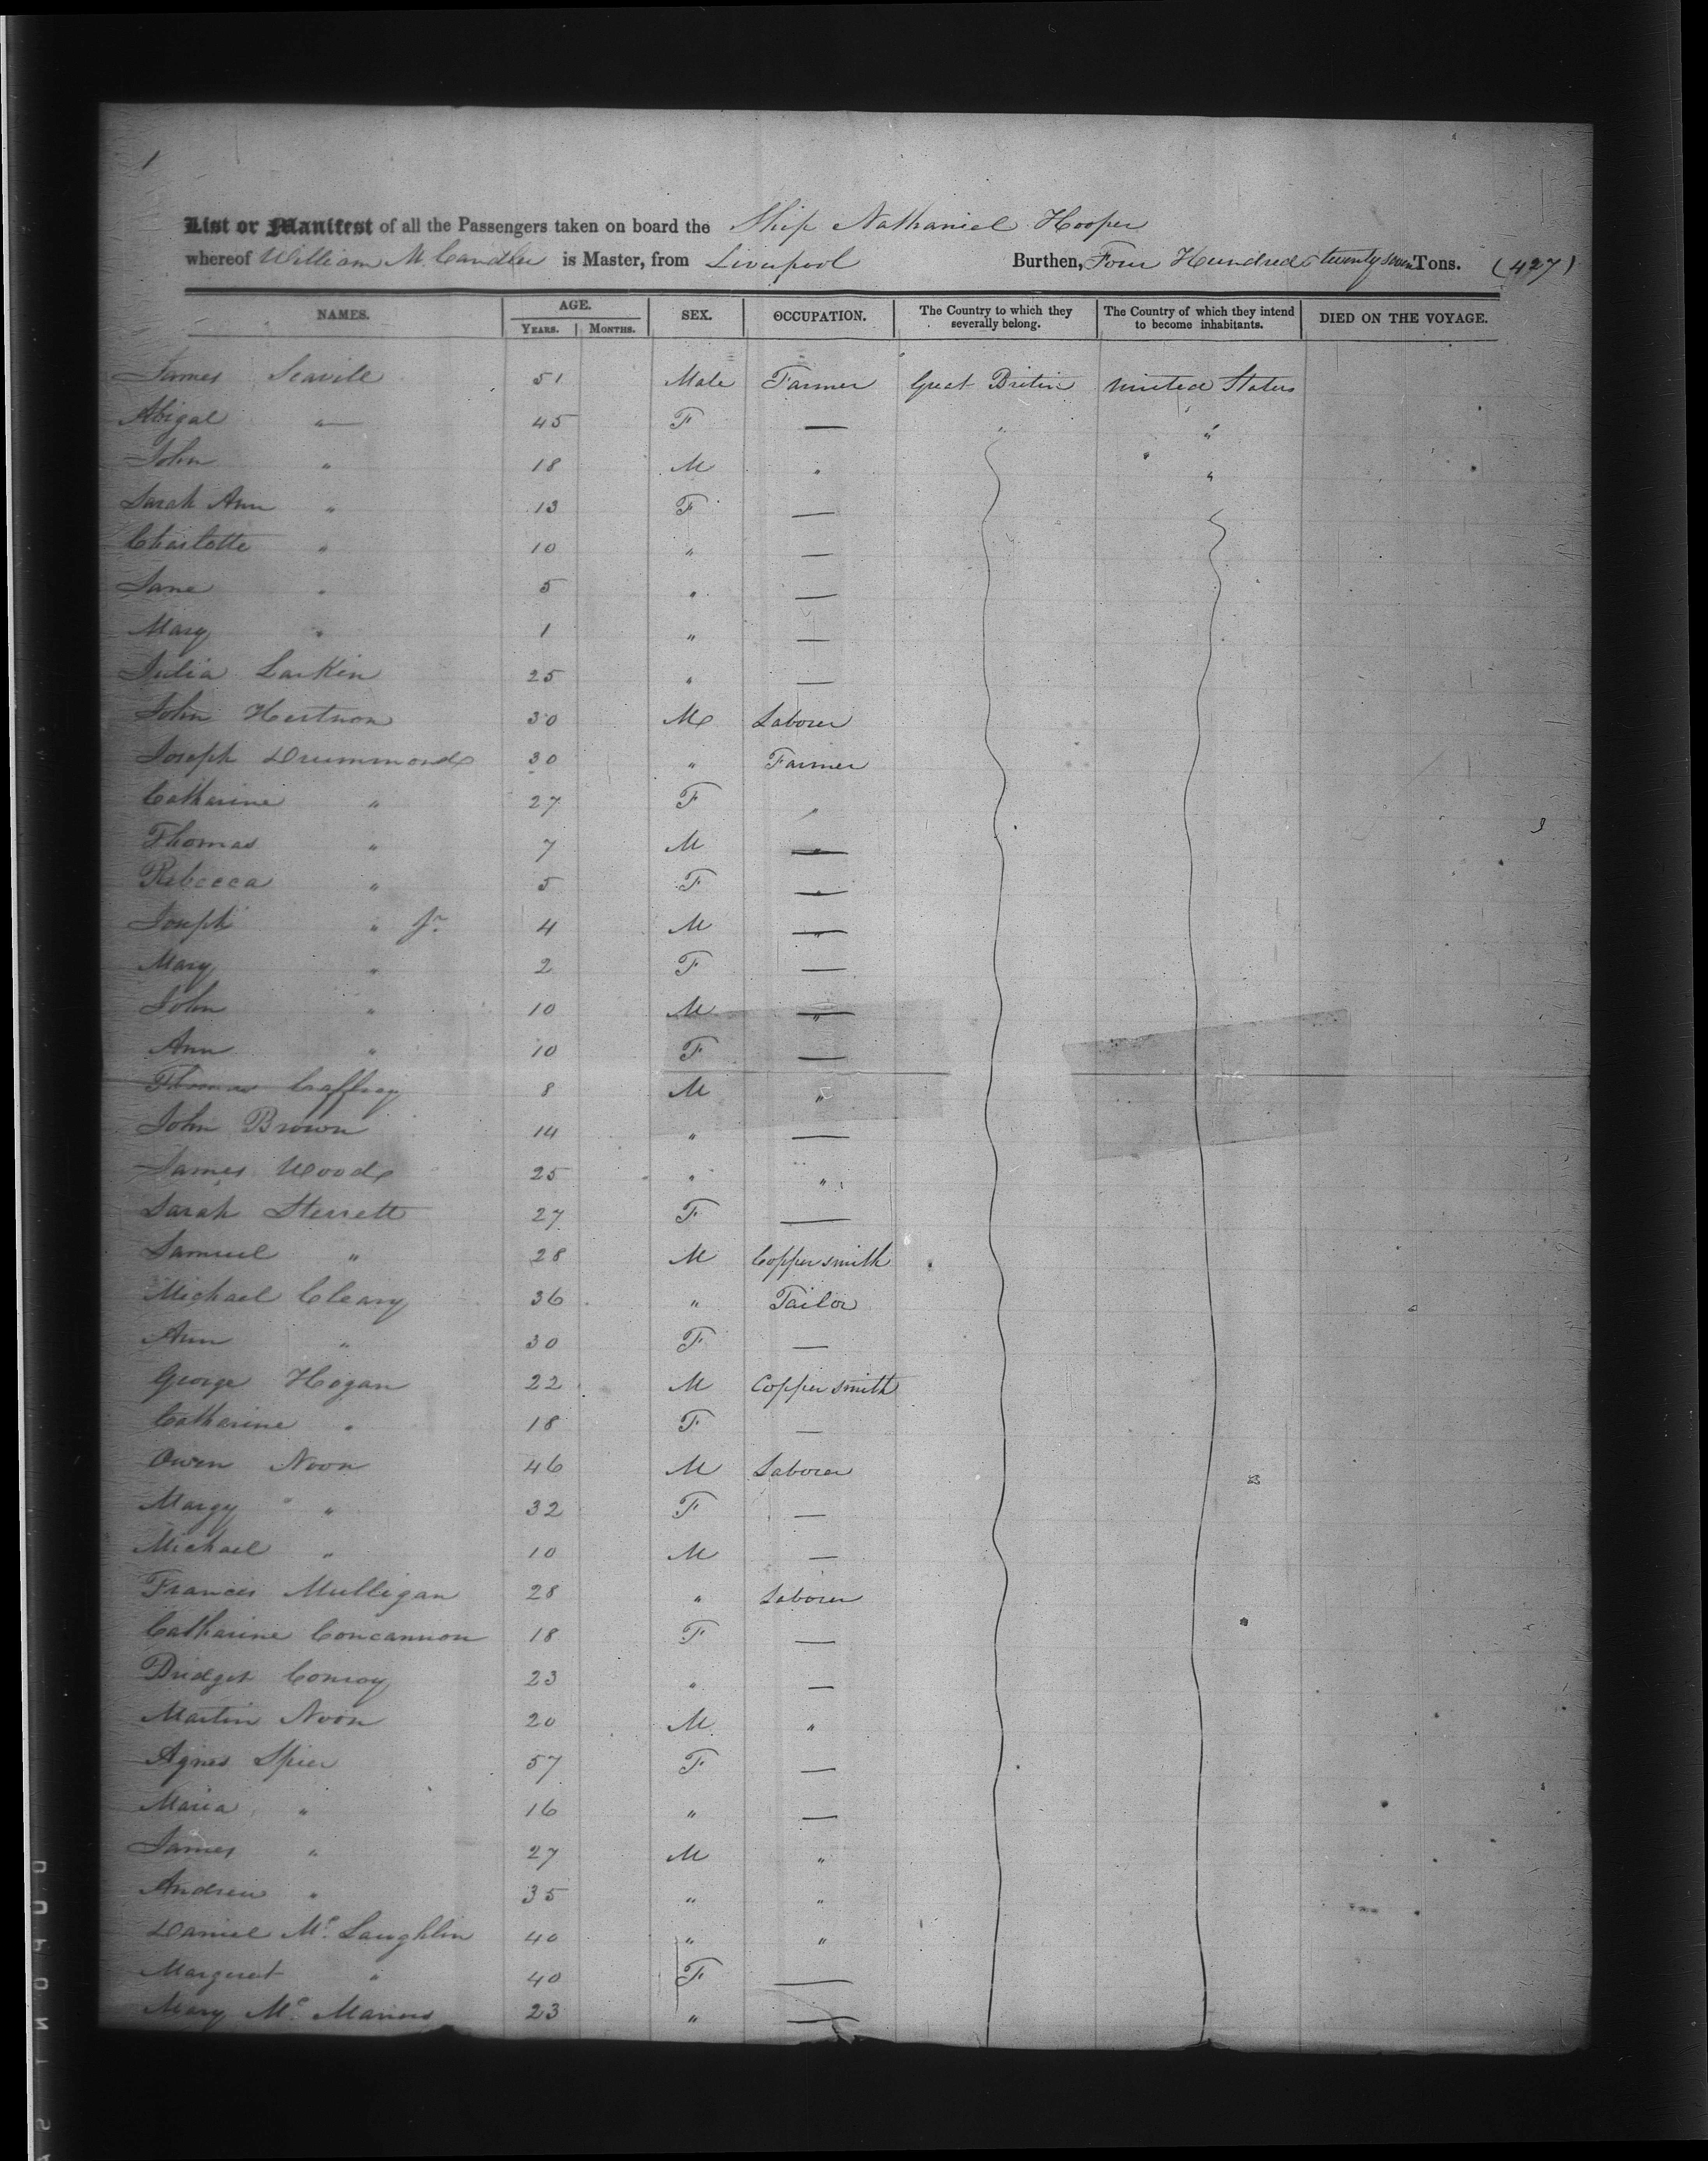 1
List or Manifest of all the Passengers taken on board the Ship Nathaniel Hooper
whereof William M. Candler is Master, from Liverpool Burthen, Four Hundred & twenty seven Tons. (427)
NAMES. AGE. YEARS. MONTHS. SEX. OCCUPATION. The Country to which they severally belong. The Country of which they intend to become inhabitants. DIED ON THE VOYAGE.
James Scavile 51 Male Farmer Great Britin United States
Abigal " 45 F — " "
John " 18 M " "
Sarah Ann " 13 F —
Charlotte " 10 " —
Jane " 5 " —
Mary " 1 " —
Julia Larkin 25 " —
John Hestnon 30 M Laborer
Joseph Drummond 30 " Farmer
Catharine " 27 F "
Thomas " 7 M —
Rebecca " 5 F —
Joseph " Jr 4 M —
Mary " 2 F —
John " 10 M —
Ann " 10 F —
Thomas Caffrey 8 M "
John Brown 14 " —
James Wood 25 " "
Sarah Sterrett 27 F —
Samuel " 28 M Copper smith
Michael Cleary 36 " Tailor
Ann " 30 F —
George Hogan 22 M Copper smith
Catharine " 18 F —
Owen Noon 46 M Laborer
Margy " 32 F —
Michael " 10 M —
Francis Mulligan 28 " Laborer
Catharine Concannon 18 F —
Bridget Conroy 23 " —
Martin Noon 20 M "
Agnes Spier 57 F —
Maria " 16 " —
James " 27 M "
Andrew " 35 " "
Daniel Mc Laughlin 40 " "
Margeret " 40 F —
Mary Mc Manus 23 " —